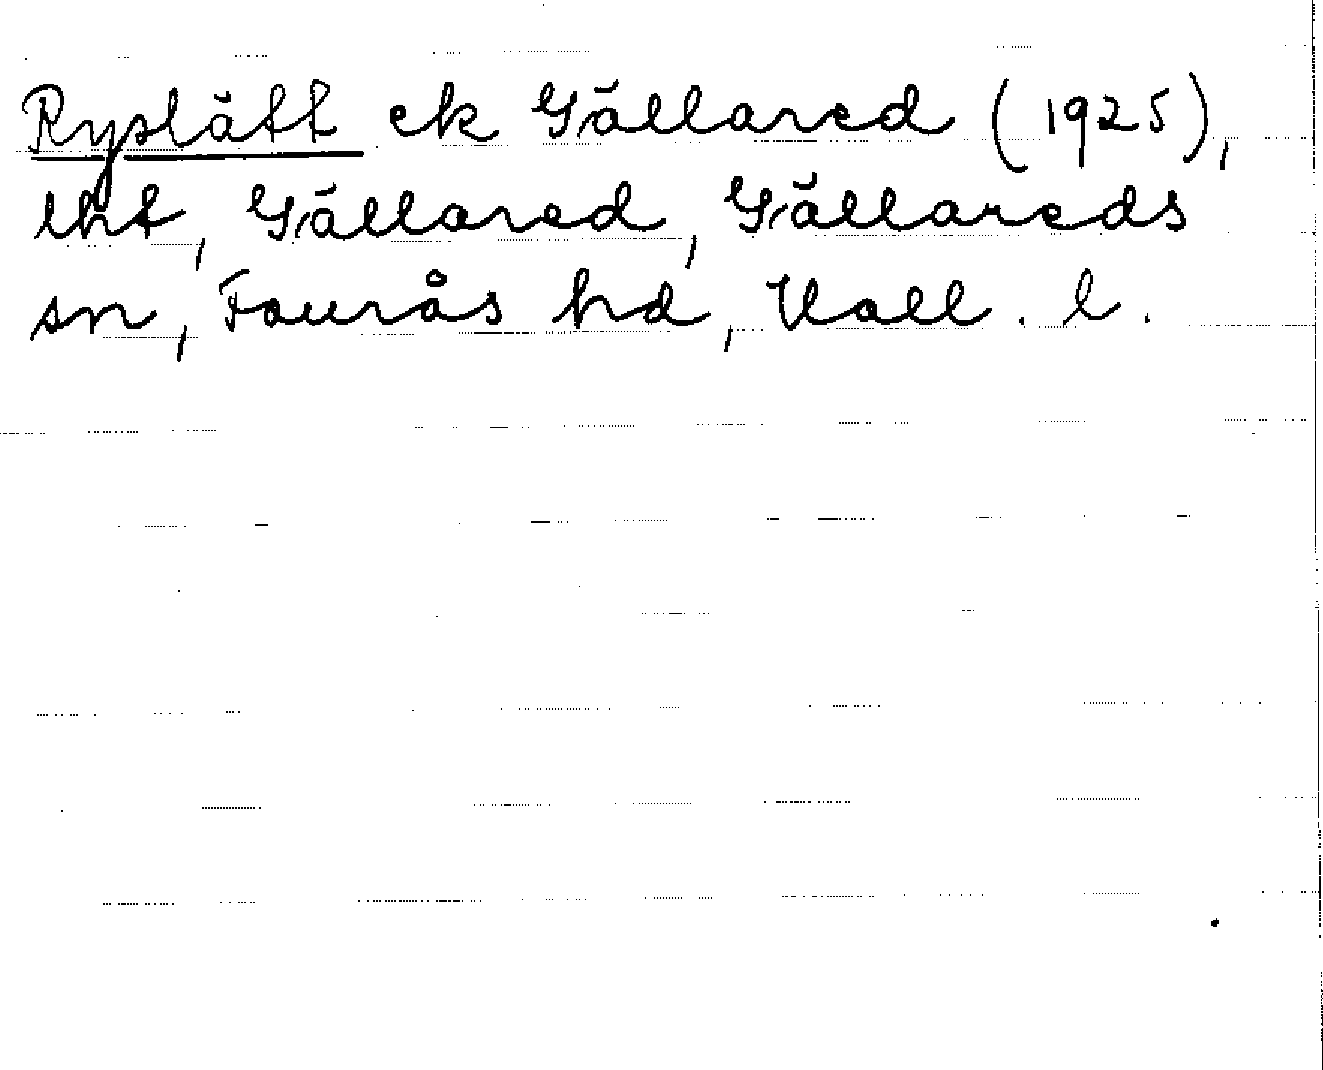 Ryslätt ek Gällared (1925),
lht, Gällared, Gällareds
sn, Faurås hd, Hall. l.